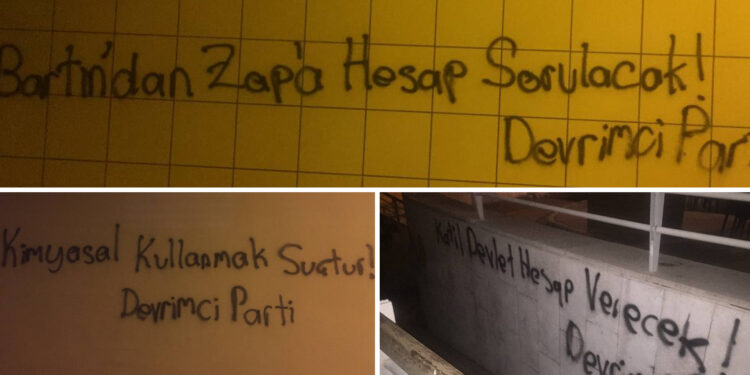 Bartın'dan Zap'a Hesap Sorulacak!
Devrimci Par
Kimyasal Kullanmak Suçtur!
Devrimci Parti
Katil Devlet Hesap Verecek!
Devri